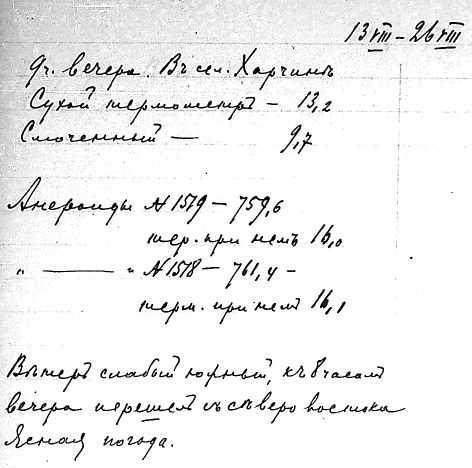 13 VIII – 26 VIII
9 ч. вечера. Въ сел. Харчинѣ
Сухой термометръ – 13,2
Смоченный — 9,7
Анероиды N 1519 – 759,6
тер. при немъ 16,0
" ——— " N 1518 – 761,4 –
терм. при немъ 16,1
Вѣтеръ слабый южный, къ 8 часамъ
вечера перешелъ съ сѣверо востока
Ясная погода.